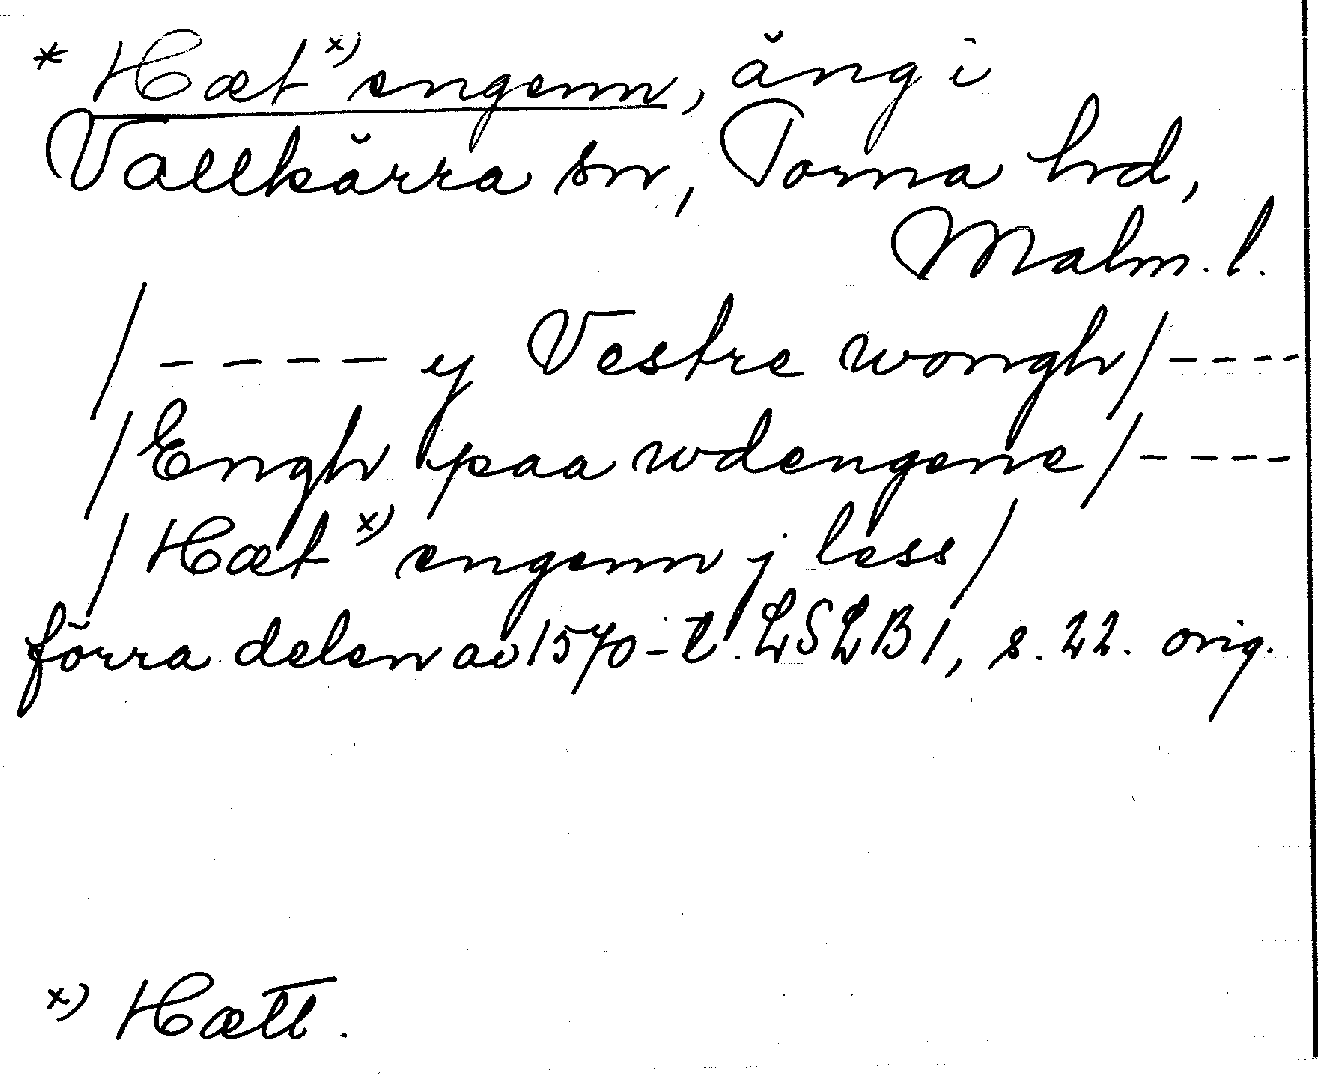 * Hæt x) engenn, äng i
Vallkärra sn, Torna hd,
Malm. l.
/ - - - - - y Vestre wongh / - - - -
/ Engh paa wdengene / - - - -
/ Hæt x) engenn j less /
förra delen av 1570-t. LSLB 1, s. 22. orig.
x) Hætt.